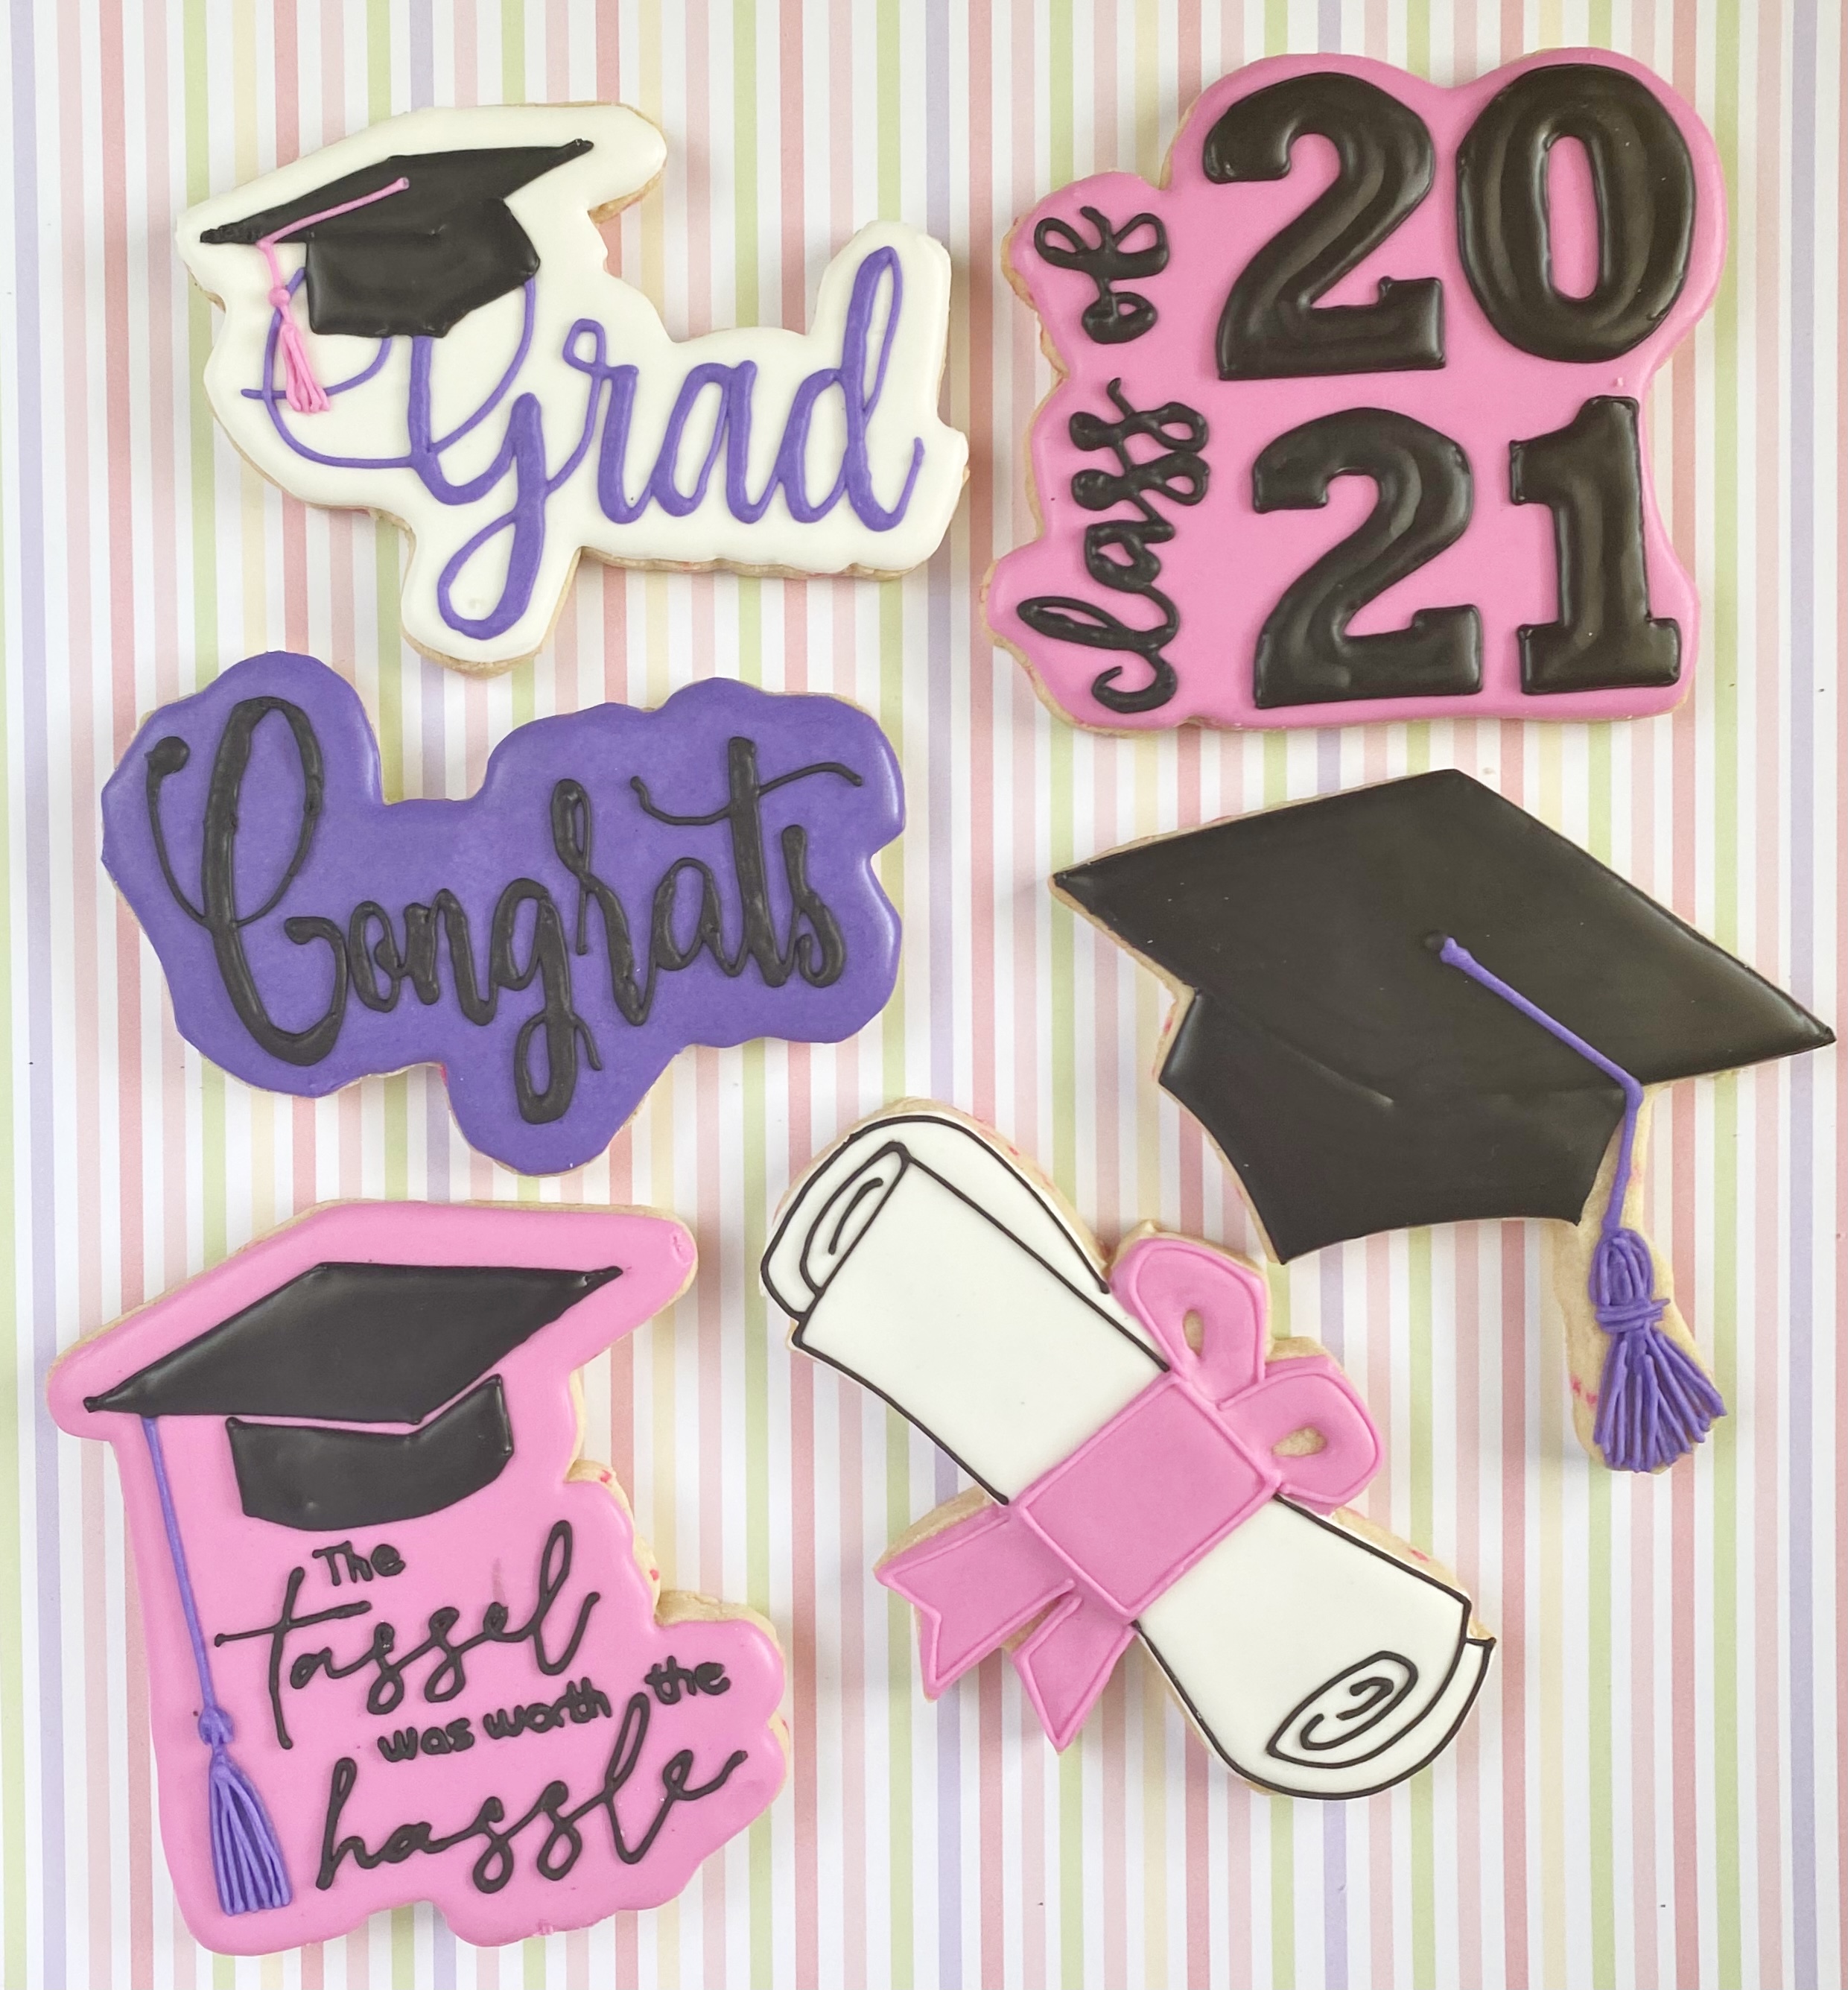 Grad
class of
20
21
Congrats
The
tassel
was worth the
hassle